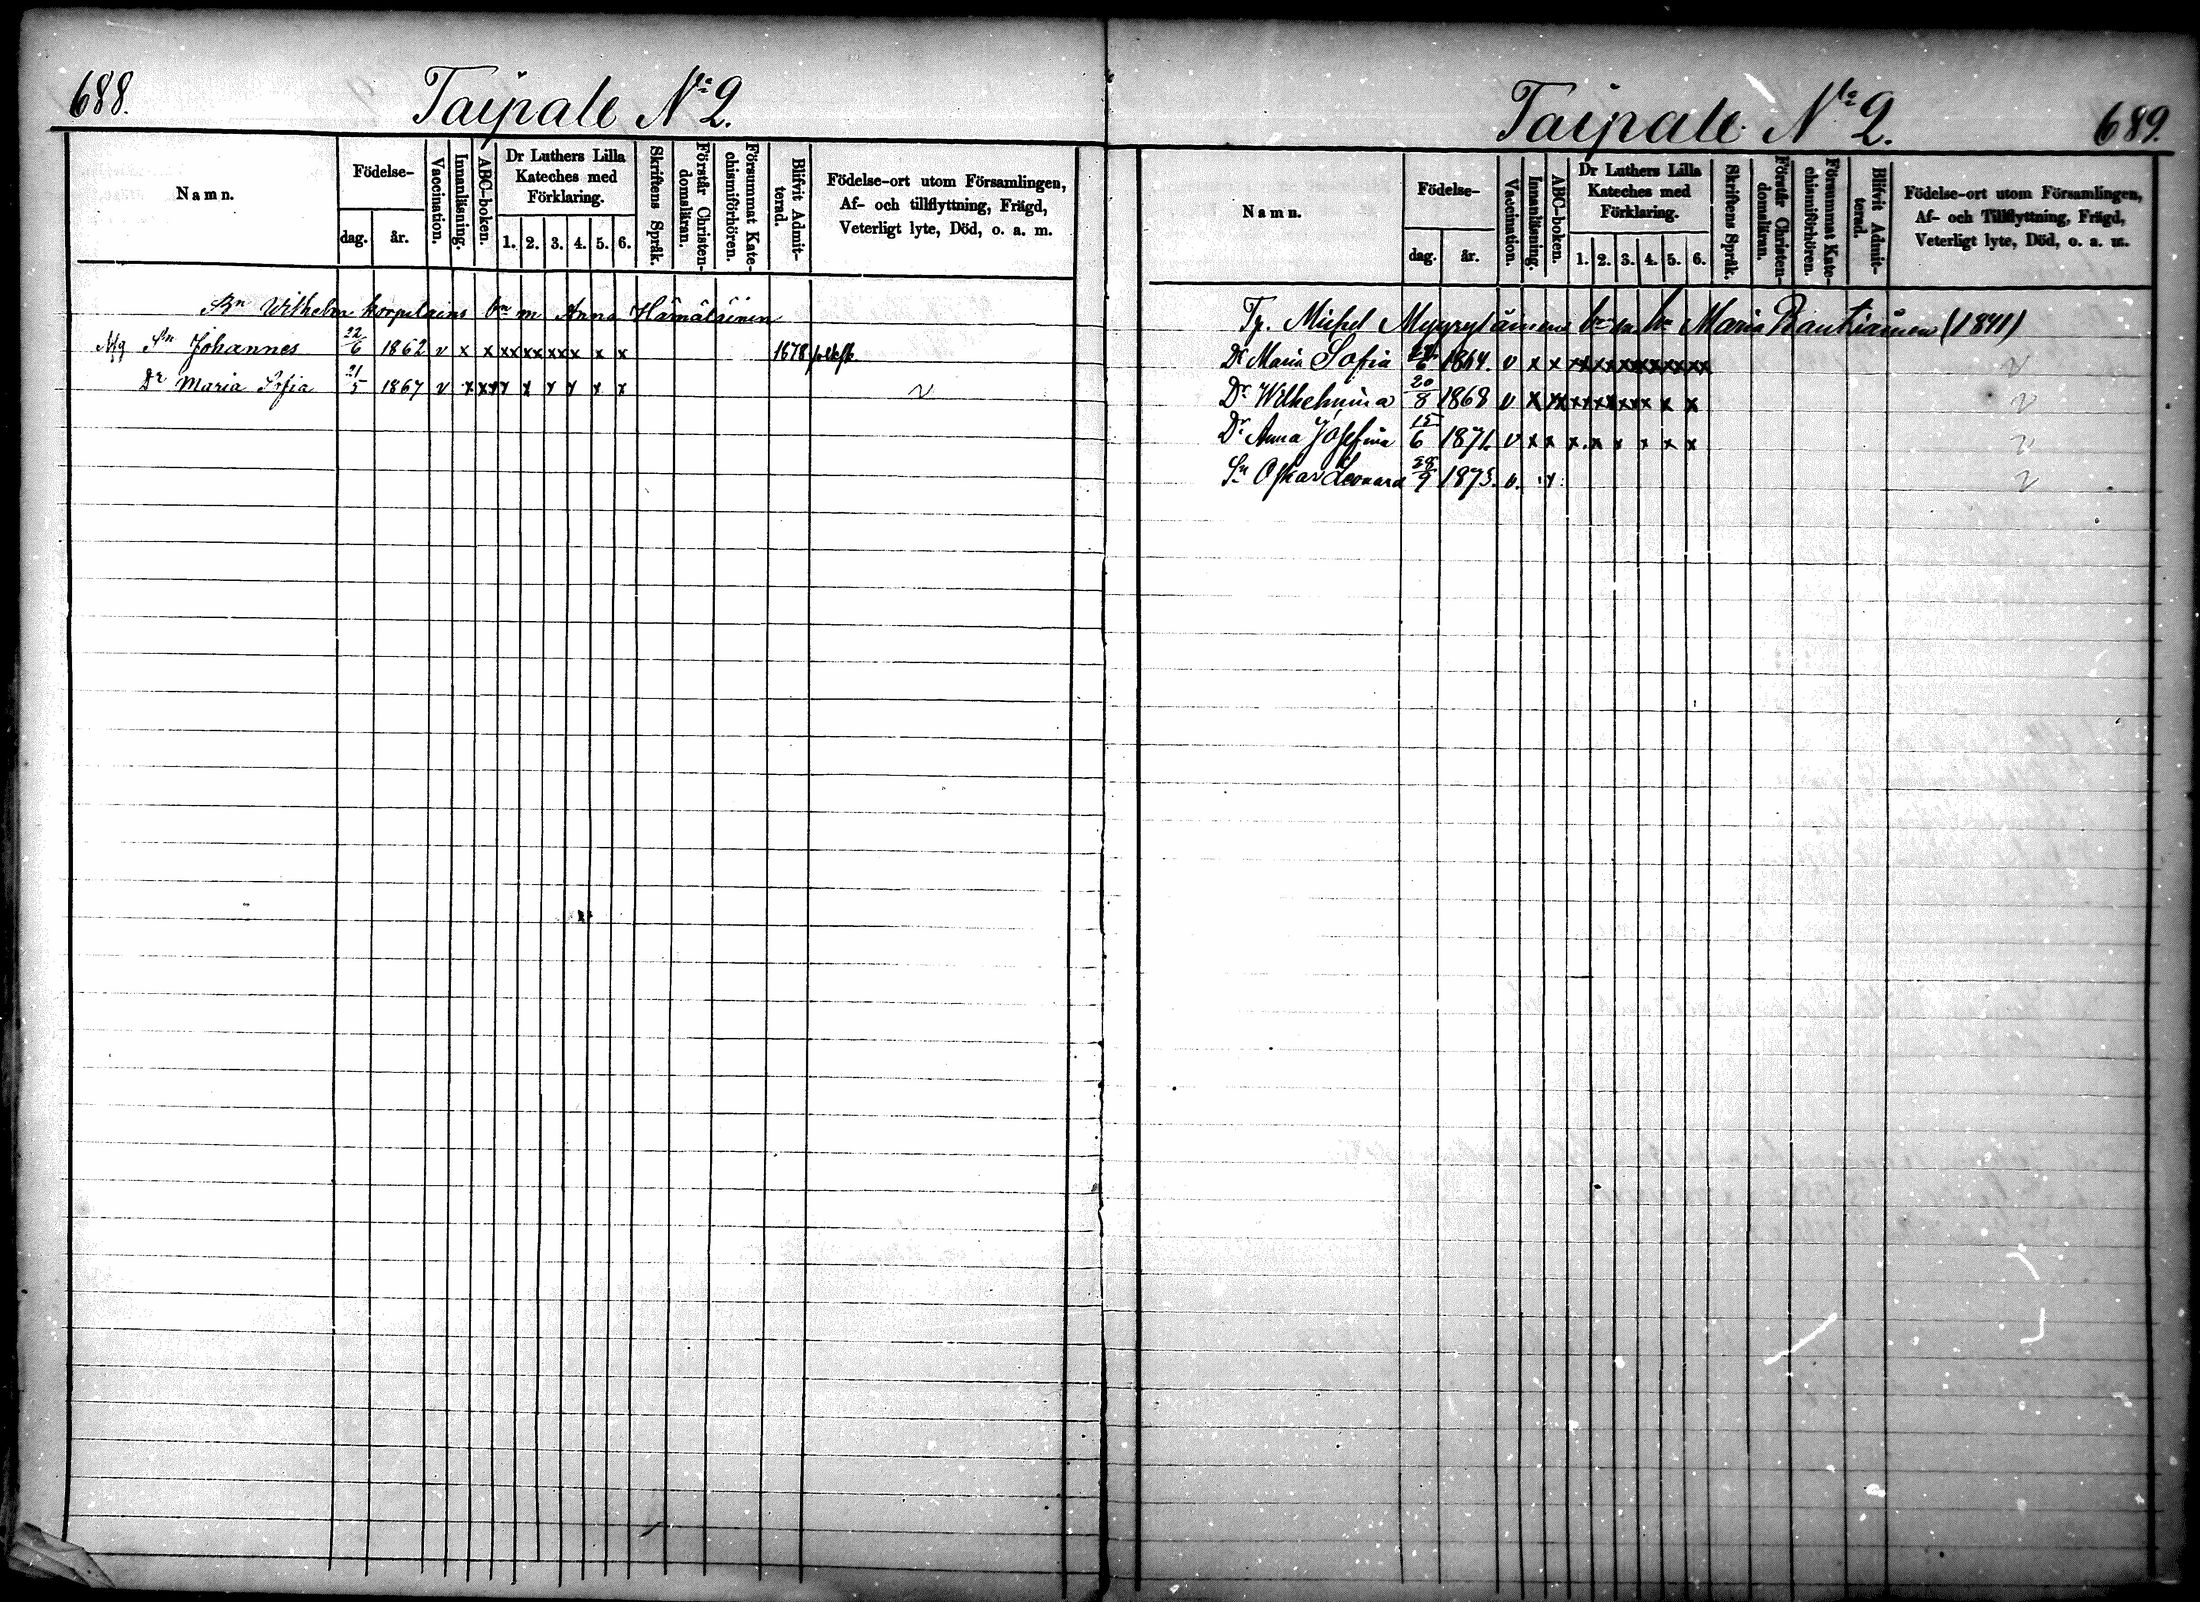 688.
Taipale No 2.
Namn.
Födelse-
dag.
år.
Vaccination.
Innanläsning.
ABC-boken.
Dr Luthers Lilla Kateches med Förklaring.
1. 2. 3. 4. 5. 6.
Skriftens Språk.
Förstår Christendomsläran.
Försummat Katechismiförhören.
Blifvit Admitterad.
Födelse-ort utom Församlingen,
Af- och tillflyttning, Frägd,
Veterligt lyte, Död, o. a. m.
Bn Wilhelm Korpelains bn m Anna Hämäläinen
Sn Johannes 22/6 1862 v x x xx xx xxx x x x 1878
Dr Maria Sofia 21/5 1867 v x xx x x x x x x v
Taipale No 2.
689.
Namn.
Födelse-
dag.
år.
Vaccination.
Innanläsning.
ABC-boken.
Dr Luthers Lilla Kateches med Förklaring.
1. 2. 3. 4. 5. 6.
Skriftens Språk.
Förstår Christendomsläran.
Försummat Katechismiförhören.
Blifvit Admitterad.
Födelse-ort utom Församlingen,
Af- och Tillflyttning, Frägd,
Veterligt lyte, Död, o. a. m.
Tp. Michel Myyryläinens bn m h. Maria Rautiainen (1841)
Dr Maria Sofia 1864. v x x xx xx xx xx xx xx v
Dr Wilhelmina 20/8 1868 v x xx xx xx xx x x x v
Dr Anna Josefina 15/6 1871. v x x x x x x x x v
Sn Oskar Leonard 28/9 1873. v. x v